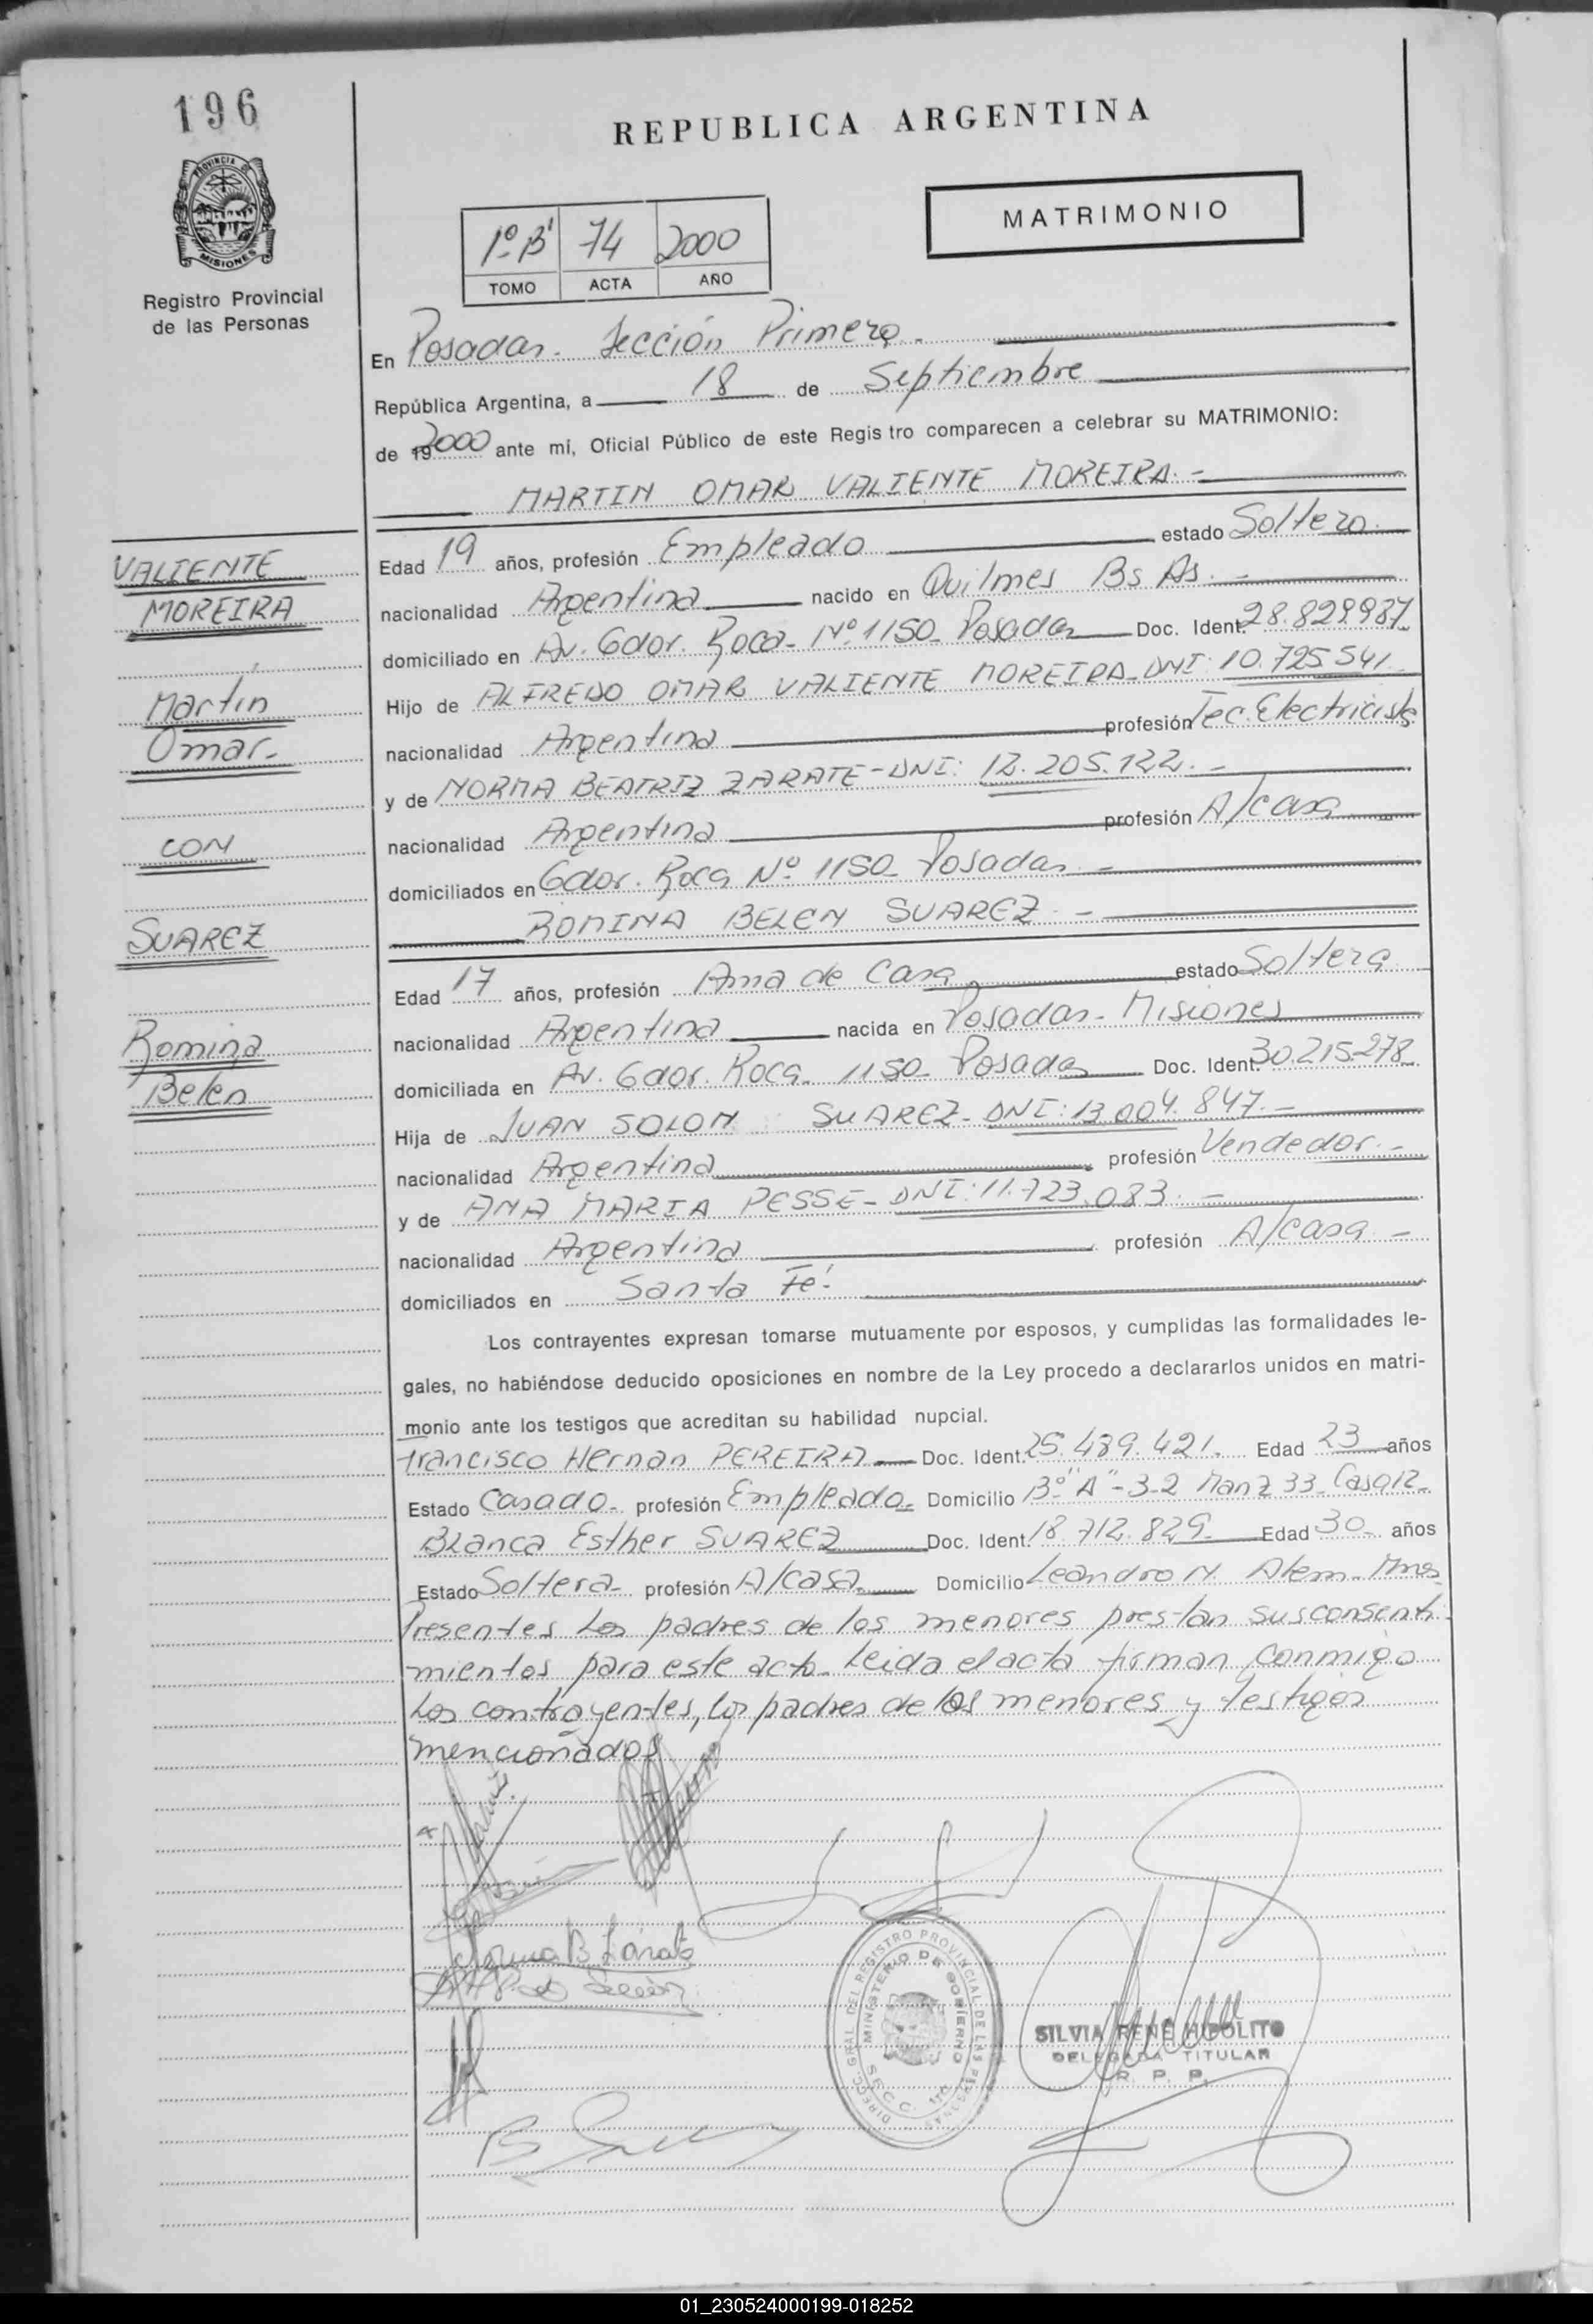 196
PROVINCIA DE
MISIONES
Registro Provincial
de las Personas
REPUBLICA ARGENTINA
MATRIMONIO
1º B' 74 2000
TOMO ACTA AÑO
En Posadas. Sección Primera.
República Argentina, a 18 de Septiembre
de 19 2000 ante mi, Oficial Público de este Regis tro comparecen a celebrar su MATRIMONIO:
MARTIN OMAR VALIENTE MOREIRA. -
Edad 19 años, profesión Empleado estado Soltero.
nacionalidad Argentina nacido en Quilmes Bs As. -
domiciliado en Av. Gdor. Roca - Nº 1150 Posadas Doc. Ident. 28.829987
Hijo de ALFREDO OMAR VALIENTE MOREIRA - DNI: 10.725.541
nacionalidad Argentina profesión Tec. Electricista
y de NORMA BEATRIZ ZARATE - DNI: 12.205.122. -
nacionalidad Argentina profesión A/casa
domiciliados en Gdor. Roca Nº 1150 Posadas. -
ROMINA BELEN SUAREZ. -
Edad 17 años, profesión Ama de Casa estado Soltera
nacionalidad Argentina nacida en Posadas - Misiones
domiciliada en Av. Gdor. Roca 1150 Posadas Doc. Ident. 30.215.278
Hija de JUAN SOLON SUAREZ - DNI: 13.004.847. -
nacionalidad Argentina profesión Vendedor. -
y de ANA MARIA PESSE - DNI: 11.723.083. -
nacionalidad Argentina profesión A/casa -
domiciliados en Santa Fé.
Los contrayentes expresan tomarse mutuamente por esposos, y cumplidas las formalidades le-
gales, no habiéndose deducido oposiciones en nombre de la Ley procedo a declararlos unidos en matri-
monio ante los testigos que acreditan su habilidad nupcial.
Francisco Hernan PEREIRA Doc. Ident. 25.489.421. Edad 23 años
Estado Casado - profesión Empleado - Domicilio Bº "A" - 3-2 Manz 33 - Casa 12 -
Blanca Esther SUAREZ Doc. Ident. 18.712.829 Edad 30 años
Estado Soltera - profesión A/casa Domicilio Leandro N. Alem - Mnes
Presentes los padres de los menores prestan sus consenti-
mientos para este acto. Leida el acta firman conmigo
los contrayentes, los padres de los menores y testigos
mencionados
VALIENTE
MOREIRA
Martin
Omar -
CON
SUAREZ
Romina
Belen
Norma B Zárate
DIRECC. GRAL. DEL REGISTRO PROVINCIAL DE LAS PERSONAS
MINISTERIO DE GOBIERNO
SECC. 1ra.
SILVIA RENE HIPOLITO
DELEGADA TITULAR
R. P. P.
01_230524000199-018252